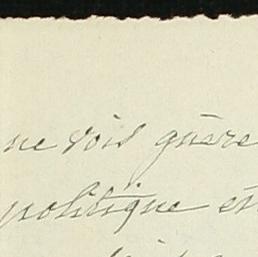 ne vois guère
politique et